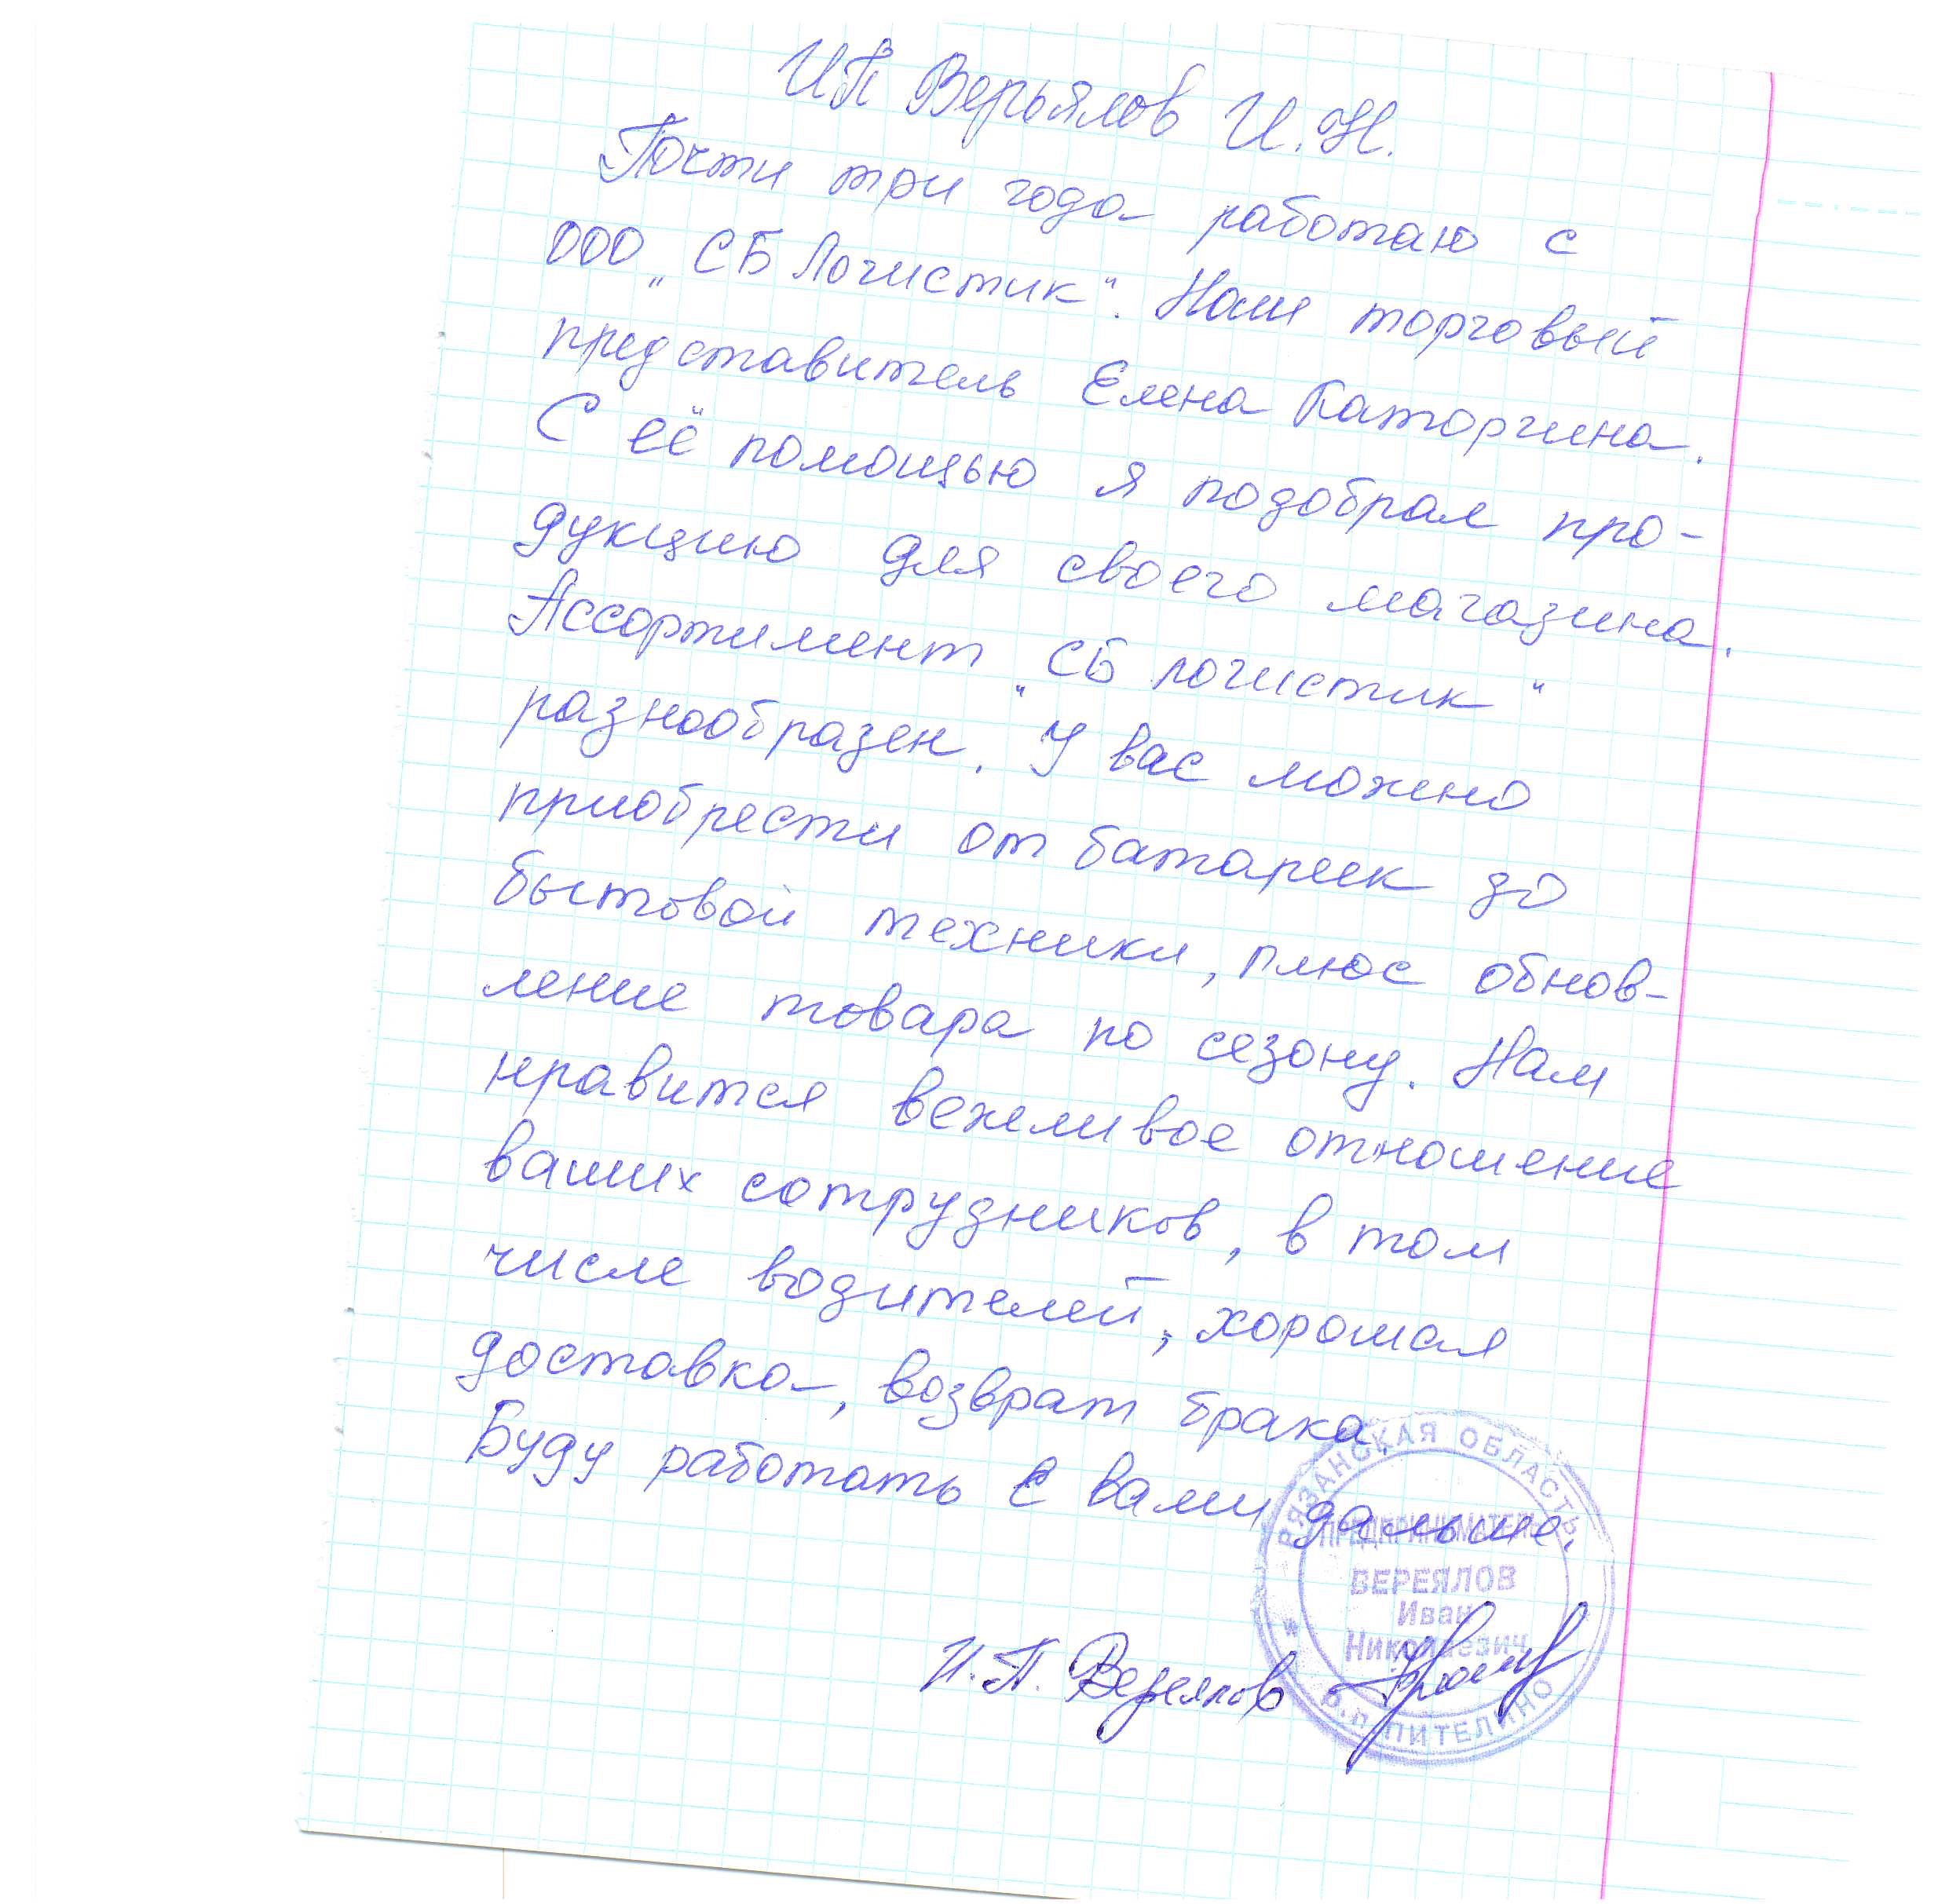 ИП Верьялов И.Н.
Почти три года работаю с
ООО „СБ Логистик“. Наш торговый
представитель Елена Каторгина.
С её помощью я подобрал про-
дукцию для своего магазина.
Ассортимент „СБ логистик“
разнообразен. У вас можно
приобрести от батареек до
бытовой техники, плюс обнов-
ление товара по сезону. Нам
нравится вежливое отношение
ваших сотрудников, в том
числе водителей, хорошая
доставка, возврат брака.
Буду работать с вами дальше.
РЯЗАНСКАЯ ОБЛАСТЬ
ПРЕДПРИНИМАТЕЛЬ
БЕРЕЯЛОВ
Иван
Николаевич
И.П. Верялов
* р.п. ПИТЕЛИНО